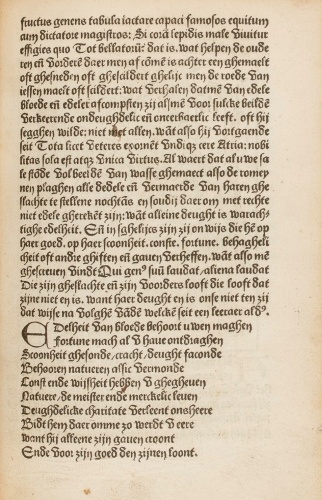 fructus generis tabula iactare capaci famosos equitum
cum dictatore magistros: Si corā lepidis male viuitur
effigies quo Tot bellatorū: dat is. wat helpen de oude
ren eñ voorderē daer men af comē is achter een ghemaelt
oft ghesneden oft ghescildert ghelijc men de roede van
iessen maelt oft scildert: wat verhalen datmē van edele
bloede eñ edeler afcompsten zij alsmē voor sulcke beildē
verkeerende ondeughdelic eñ oneerbaerlic leeft. oft hij
segghen wilde: niet met allen. wāt also hij voortgaende
seit Tota licet veteres exornēt vndiqȝ cere Atria: nobi
litas sola est atqȝ vnica virtus. Al waert dat al uwe sa
le stōde vol beeldē van wasse ghemaect also de romey
nen plaghen alle dedele eñ vermaerde van haren ghe
slachte te stellene nochtās en soudij daer om met rechte
niet edele gherekēt zijn: wāt alleine deught is warach-
tighe edelheit. Eñ in sghelijcs zijn zij onwijs die hē op
haer goed. op haer scoonheit. conste. fortune. behagheli
cheit oft andre ghiften eñ gauen verheffen. wāt also mē
ghescreuen vindt Qui genꝰ suū laudat / aliena laudat
Die zijn gheslachte eñ zijn voorders looft die looft dat
zijne niet en is. want haer deught en is onse niet ten zij
dat wijse na volghē vādē welckē seit een leeraer aldꝰ.
Edelheit van bloede behoort uwen maghen
Fortune mach al v haue ontdraghen
Scoonheit ghesonde / cracht / deught faconde
Behooren natueren alsic vermonde
Const ende wijsheit hebben v ghegheuen
Natuere / de meister ende merckelic leuen
Deughdelicke charitate verleent ons heere
Bidt hem daer omme zo werdt v eere
want hij alleene zijn gauen croont
Ende voor zijn goed den zijnen loont.